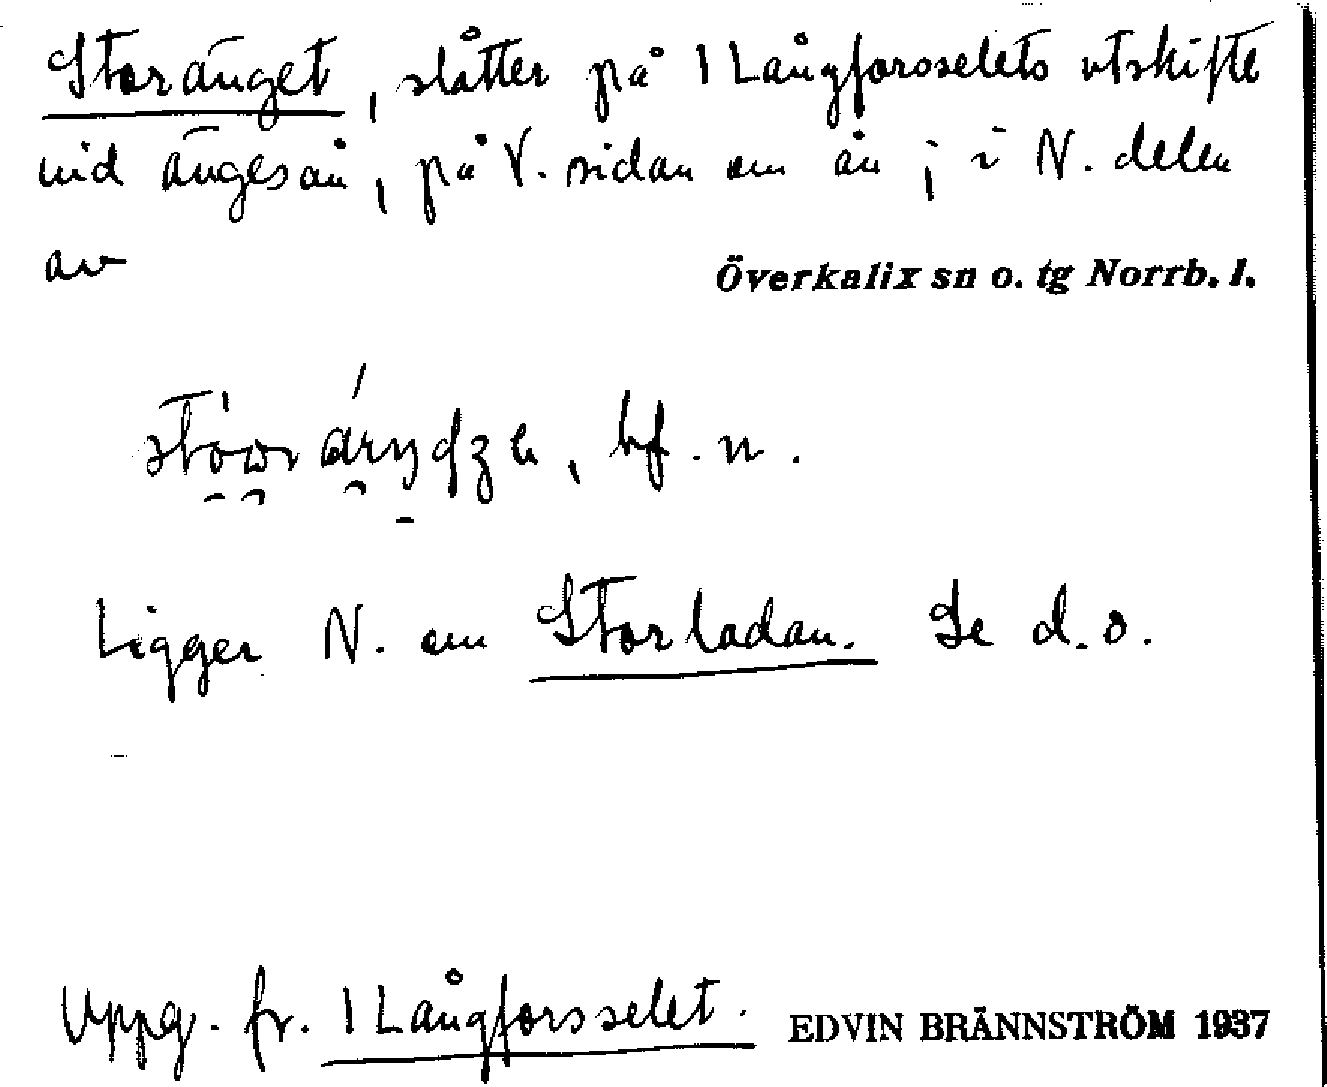 Storänget, slåtter på 1 Långforsselets utskifte
vid ängesån, på V. sidan om ån; i N. delen
av
Överkalix sn o. tg Norrb. l.
bf. n.
Ligger N. om Storladan. Se d. o.
Uppg. fr. 1 Långforsselet.
EDVIN BRÄNNSTRÖM 1937